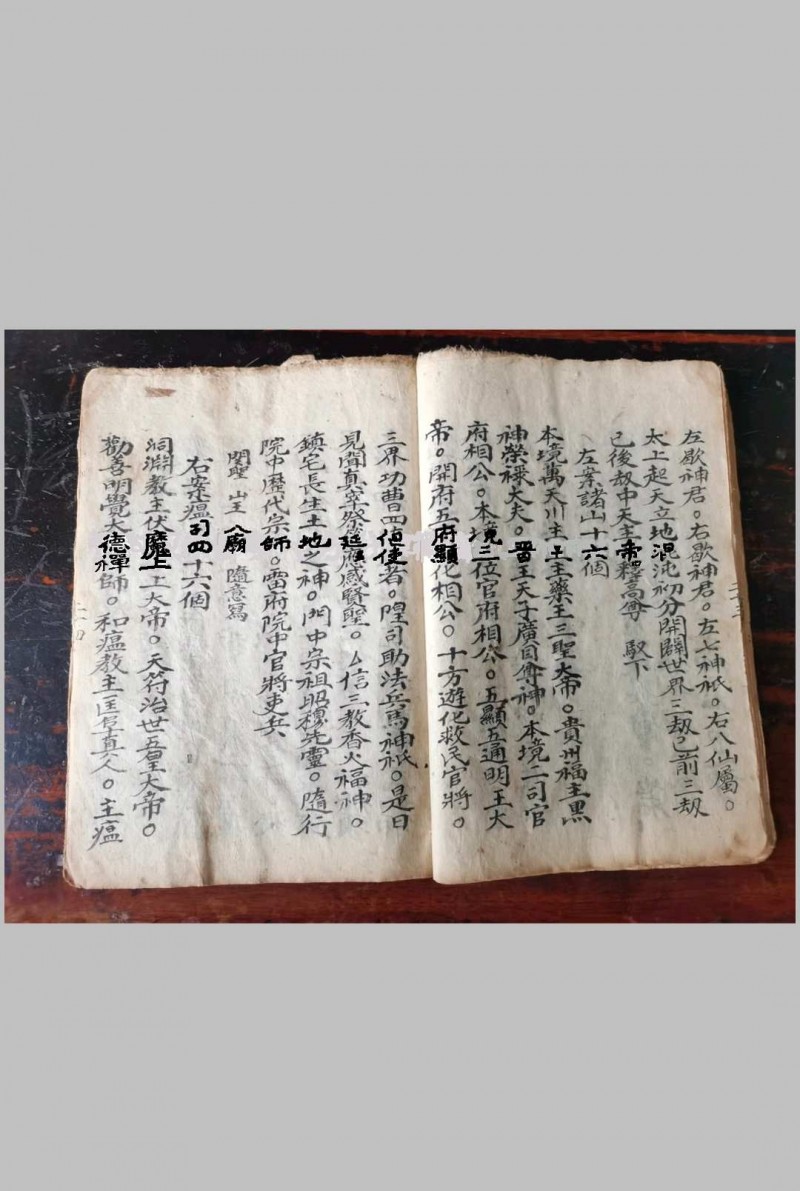 左歇神君。右歇神君。左七神祇。右八仙屬。
太上起天立地混沌初分開闢世界三劫已前三劫
已後劫中天主帝釋高尊 馭下
左案諸山十六個
本境萬天川主土主藥王三聖大帝。貴州福主黑
神榮祿大夫。晋王天子廣目尊神。本境二司官
府相公。本境三位官府相公。五顯五通明王大
帝。開府五府顯化相公。十方遊化救民官將。
三界功曹四值使者。隍司助法兵馬神祇。是日
見聞真宰感應賢聖。厶信三教香火福神。
鎮宅長生土地之神。門中宗祖昭穆先靈。隨行
院中歷代宗師。雷府院中官將吏兵
関聖 山王 八廟 隨意寫
右案瘟司四十六個
洞淵教主伏魔上大帝。天符治世五皇大帝。
勸善明覺大德禪師。和瘟教主匡阜真人。主瘟